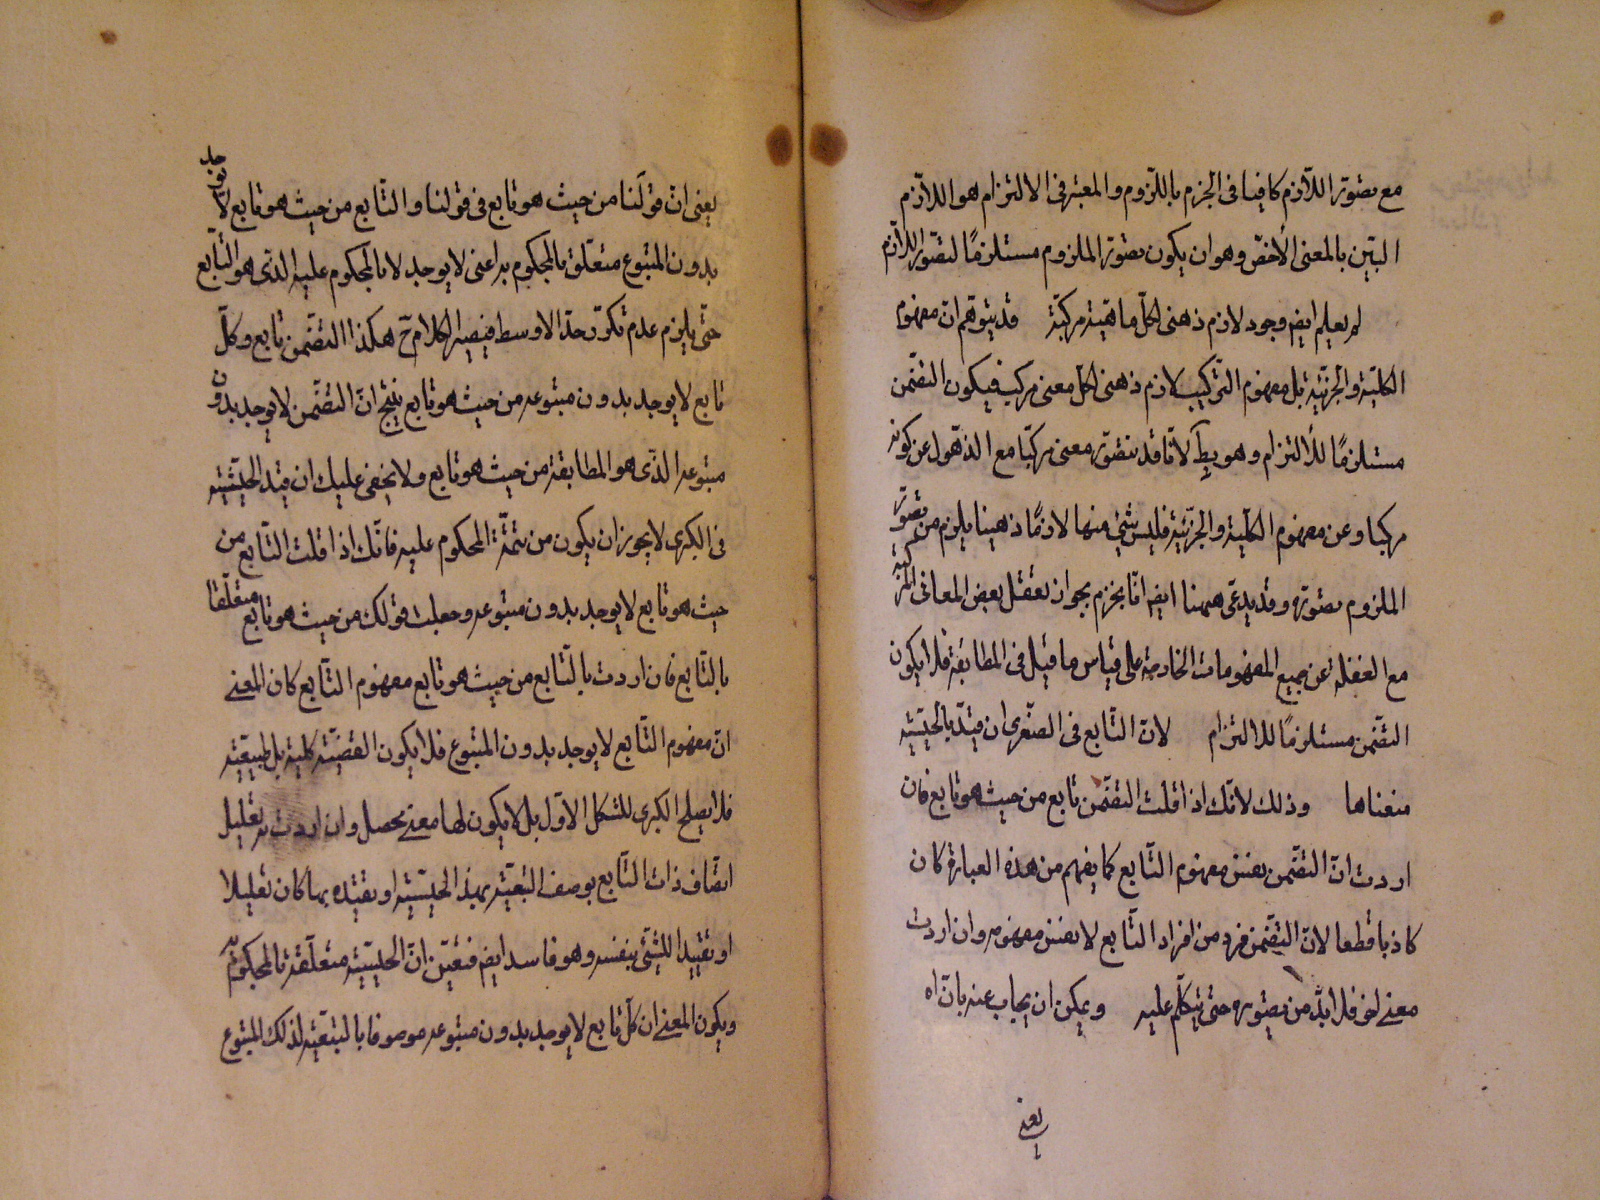 مع تصوّر اللّازم كافيا فى الجزم باللّزوم والمعتبر فى الالتزام هو اللازم
البيّن بالمعنى الأخصّ وهو ان يكون تصوّر الملزوم مستلزمًا لتصوّر اللّازم
لم يعلم ايض وجود لازم ذهنى لكلّ ماهيّة مركّبة قد يتوهّم ان مفهوم
الكليّة والجزئيّة بل مفهوم التركيب لازم ذهنى لكل معنى مركب فيكون التضمّن
مستلزمًا للألتزام وهو بط لانّا قد نتصوّر معنى مركبّا مع الذهول عن كونه
مركبا وعن مفهوم الكليّة والجزئيّة فليس شئ منها لازمًا ذهنيا يلزم من تصوّر
الملزوم تصوّره وقد يدعّى ههنا ايض انّا نجزم بجواز تعقّل بعض المعانى المركّبة
مع الغفلة عن جميع المفهومات الخارجة على قياس ما قيل فى المطابقة فلا يكون
التضّمن مستلزمًا للالتزام لانّ التّابع فى الصّغرى ان قيّد بالحيثيّة
منعناها وذلك لانّك اذا قلت التضمّن تابع من حيث هو تابع فان
اردت انّ التضّمن نفس مفهوم التّابع كما يفهم من هذه العبارة كان
كاذبا قطعا لانّ التضّمن فرد من افراد التّابع لا نفس مفهومه وان اردت
معنى اخر فلا بدّ من تصويره حتى يتكلّم عليه ويمكن ان يجاب عنه بانّ اه
يعنى
يعنى ان قولنا من حيث هو تابع فى قولنا والتّابع من حيث هو تابع لا يوجد
بدون المتبوع متعلّق بالمحكوم به اعنى لا يوجد لا بالمحكوم عليه الذى هو التّابع
حتّى يلزم عدم تكرّر حدّ الاوسط فيصير الكلام ح هكذا التضّمن تابع وكلّ
تابع لا يوجد بدون متبوعه من حيث هو تابع ينتج انّ التضّمن لا يوجد بدون
متبوعه الذّى هو المطابقة من حيث هو تابع ولا يخفى عليك ان قيد الحيثيّة
فى الكبرى لا يجوز ان يكون من تتمّة المحكوم عليه فانّك اذا قلت التّابع من
حيث هو تابع لا يوجد بدون متبوعه وجعلت قولك من حيث هو تابع متعلّقا
بالتّابع فان اردت بالتّابع من حيث هو تابع مفهوم التّابع كان المعنى
انّ مفهوم التّابع لا يوجد بدون المتبوع فلا يكون القضيّة كلية بل طبيعيّة
فلا يصلح الكبرى للشكل الاوّل بل لا يكون لها معنى محصل وان اردت به تعليل
اتصّاف ذات التّابع بوصف التبعيّة بهذ الحيثيّة او تقيّده بها كان تعليلا
او تقييدا للشئ بنفسه وهو فاسد ايض فتعيّن انّ الحيثيّة متعلّقة بالمحكوم به
ويكون المعنى ان كلّ تابع لا يوجد بدون متبوعه موصوفا بالتبعيّة لذلك المتبوع